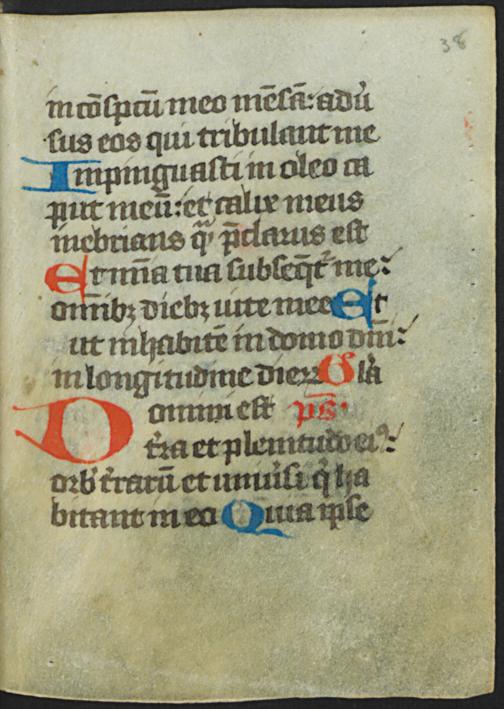 38
in cōspcū meo mēsā: adu᷑
sus eos qui tribulant me
Impinguasti in oleo ca
put meū: et calix meus
inebrians q̄ p̄clarus est
Et mīa tua subseq̄t᷑ me:
omīb; dieb; uite mee Et
ut inhabitē in domo dn̄i:
in longitudine dieꝝ Gl̄a
Domini est ps̄.
t᷑ra et plenitudo ei⁹:
orb᷑ t᷑rarū et uniu᷑si q̄ ha
bitant in eo Quia ipse